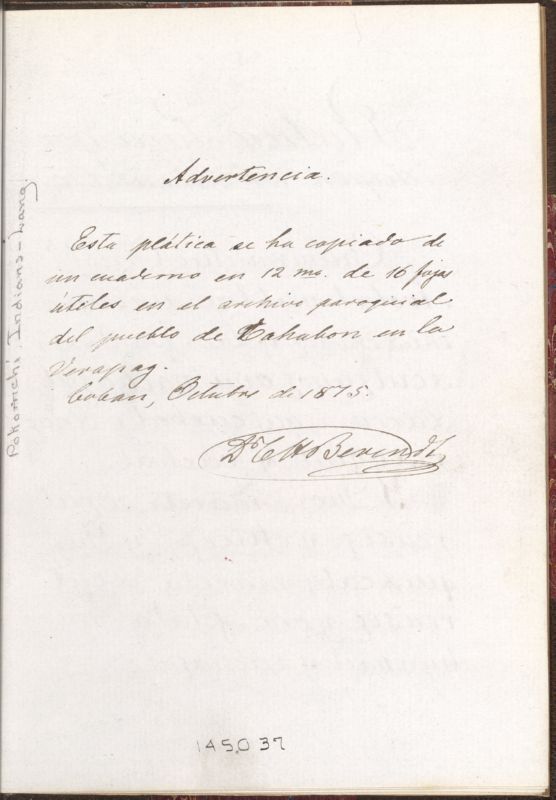 Advertencia.
Esta plática se ha copiado de
un cuaderno en 12 mo. de 16 fojas
útiles en el archivo paroquial
del pueblo de Cahabon en la
Verapaz.
Coban, Octubre de 1875.
Dr. C H Berendt
Pokomchi Indians - Lang
145037